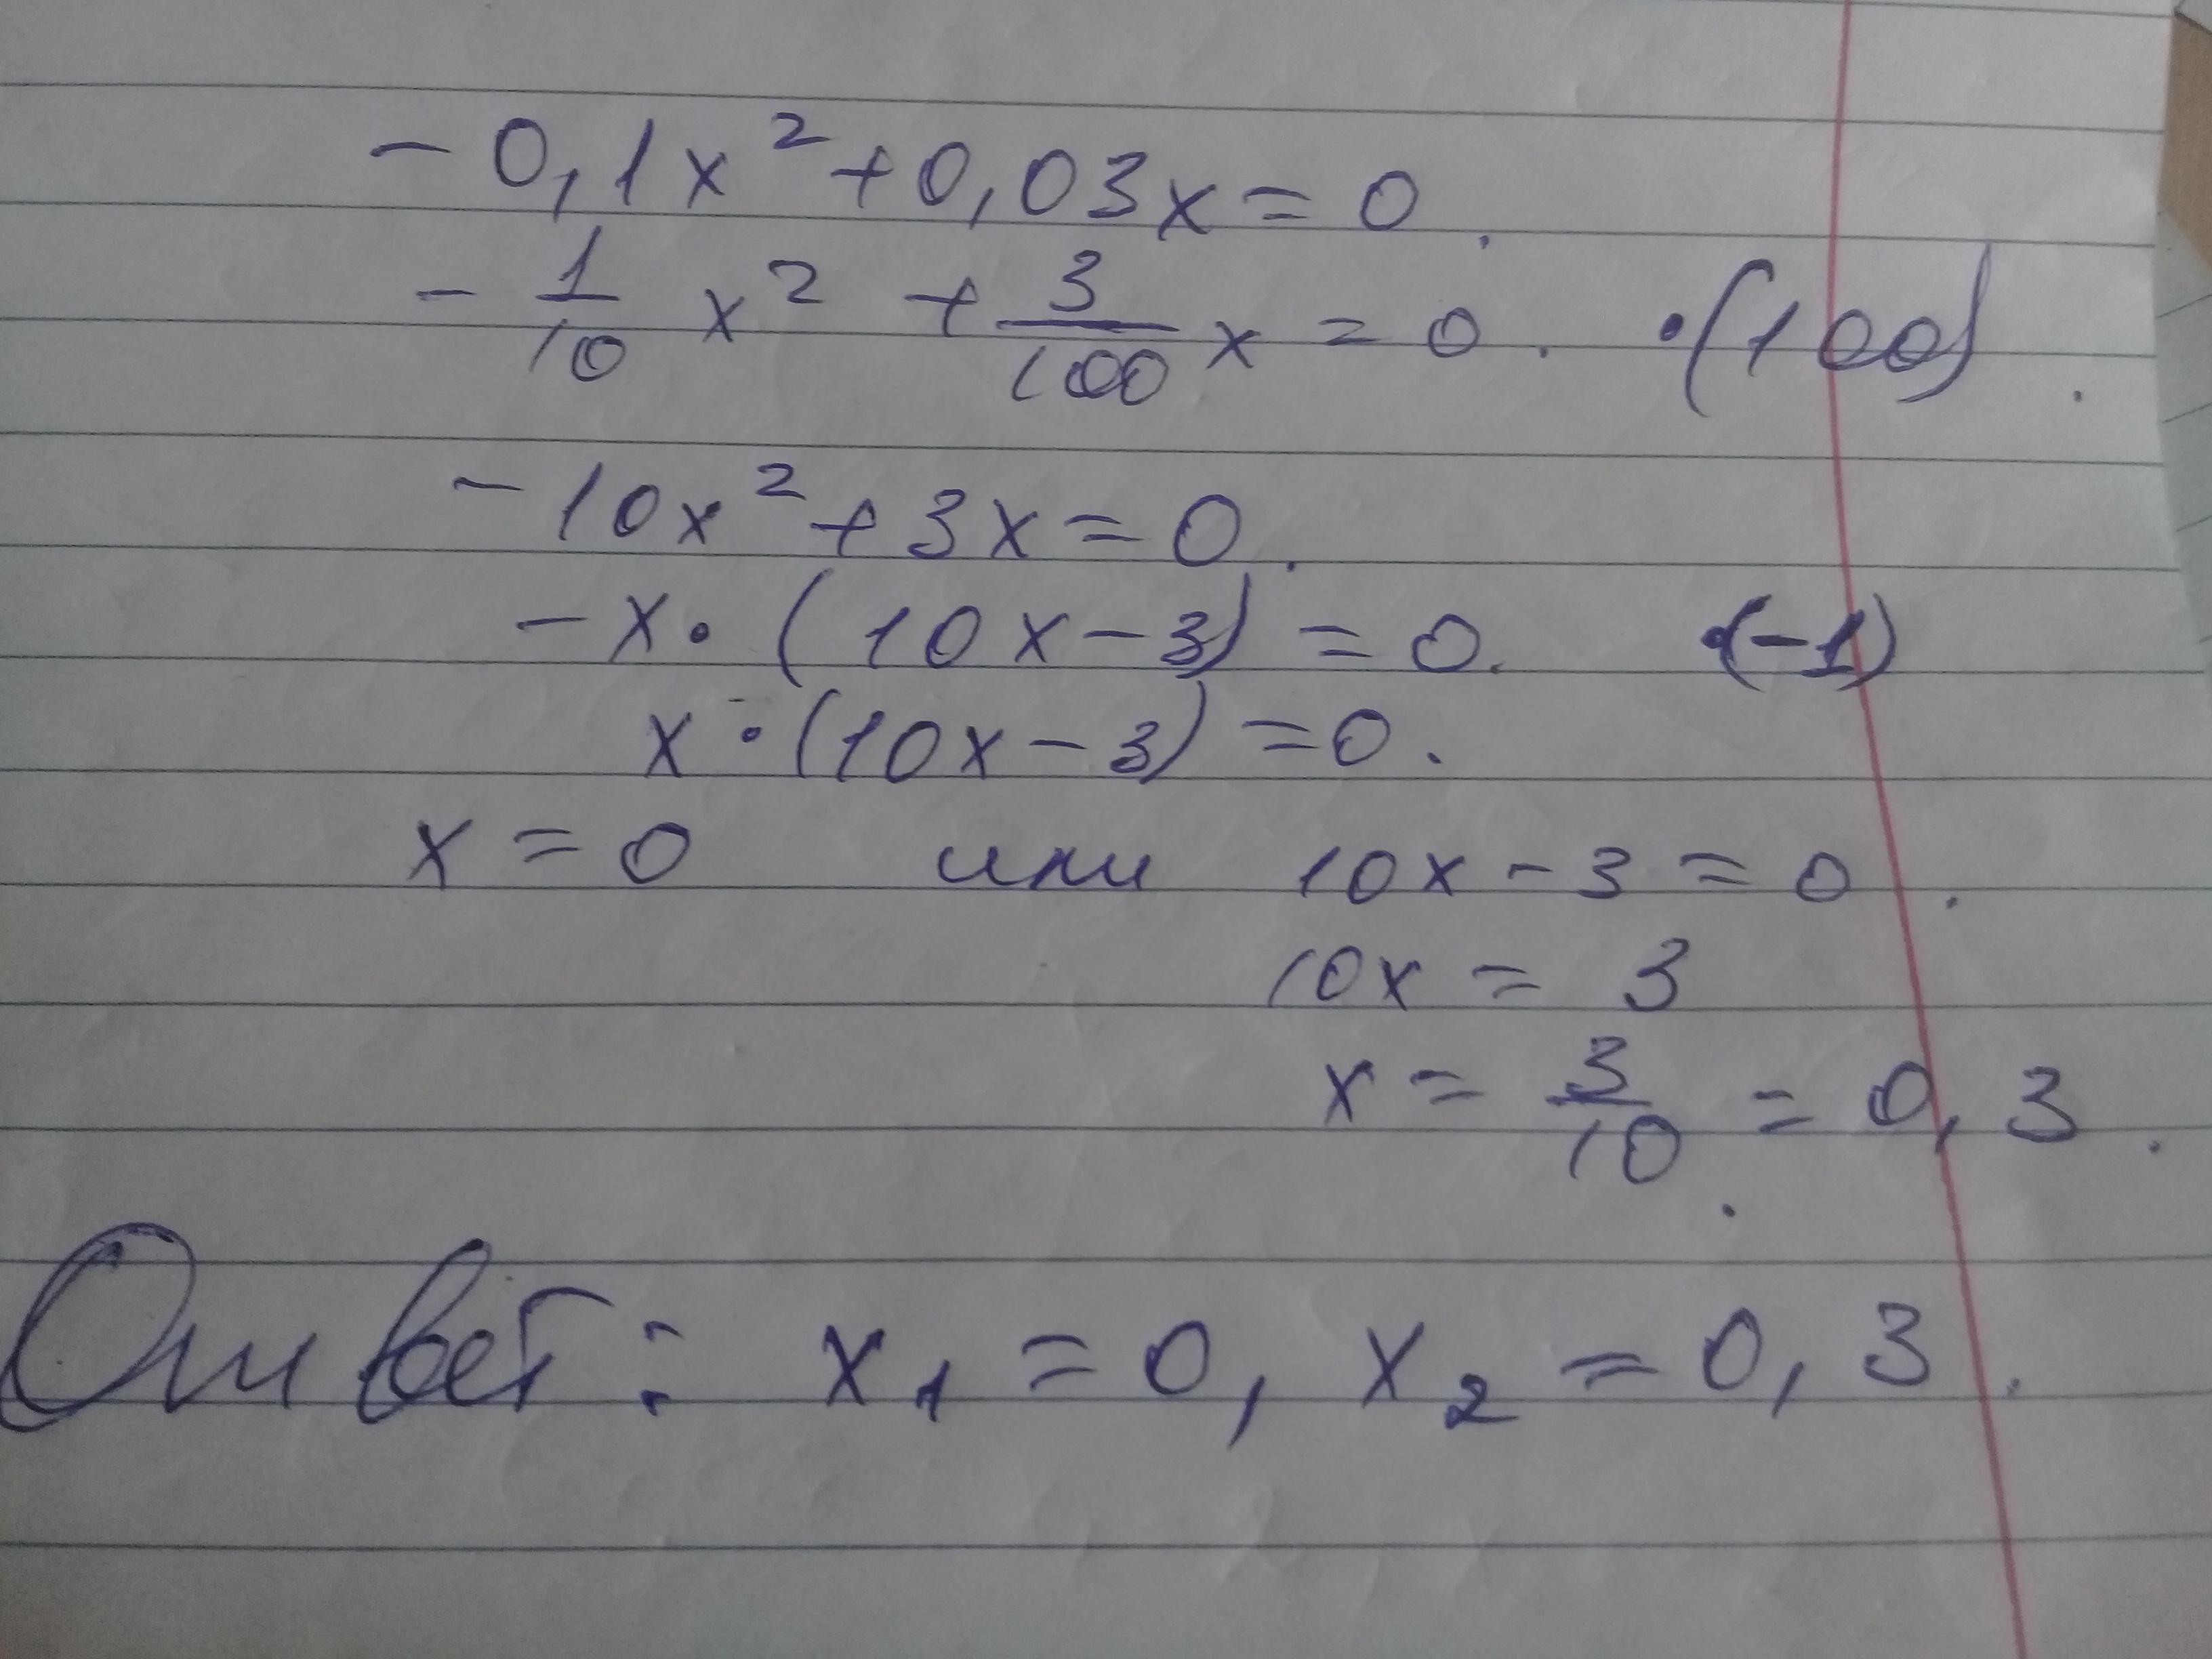 - 0,1x² + 0,03x = 0.
- 1/10 x² + 3/100 x = 0. ·(100).
- 10x² + 3x = 0.
- x · (10x - 3) = 0. ·(-1)
x · (10x - 3) = 0.
x = 0 или 10x - 3 = 0.
10x = 3
x = 3/10 = 0,3.
Ответ: x₁ = 0, x₂ = 0,3.